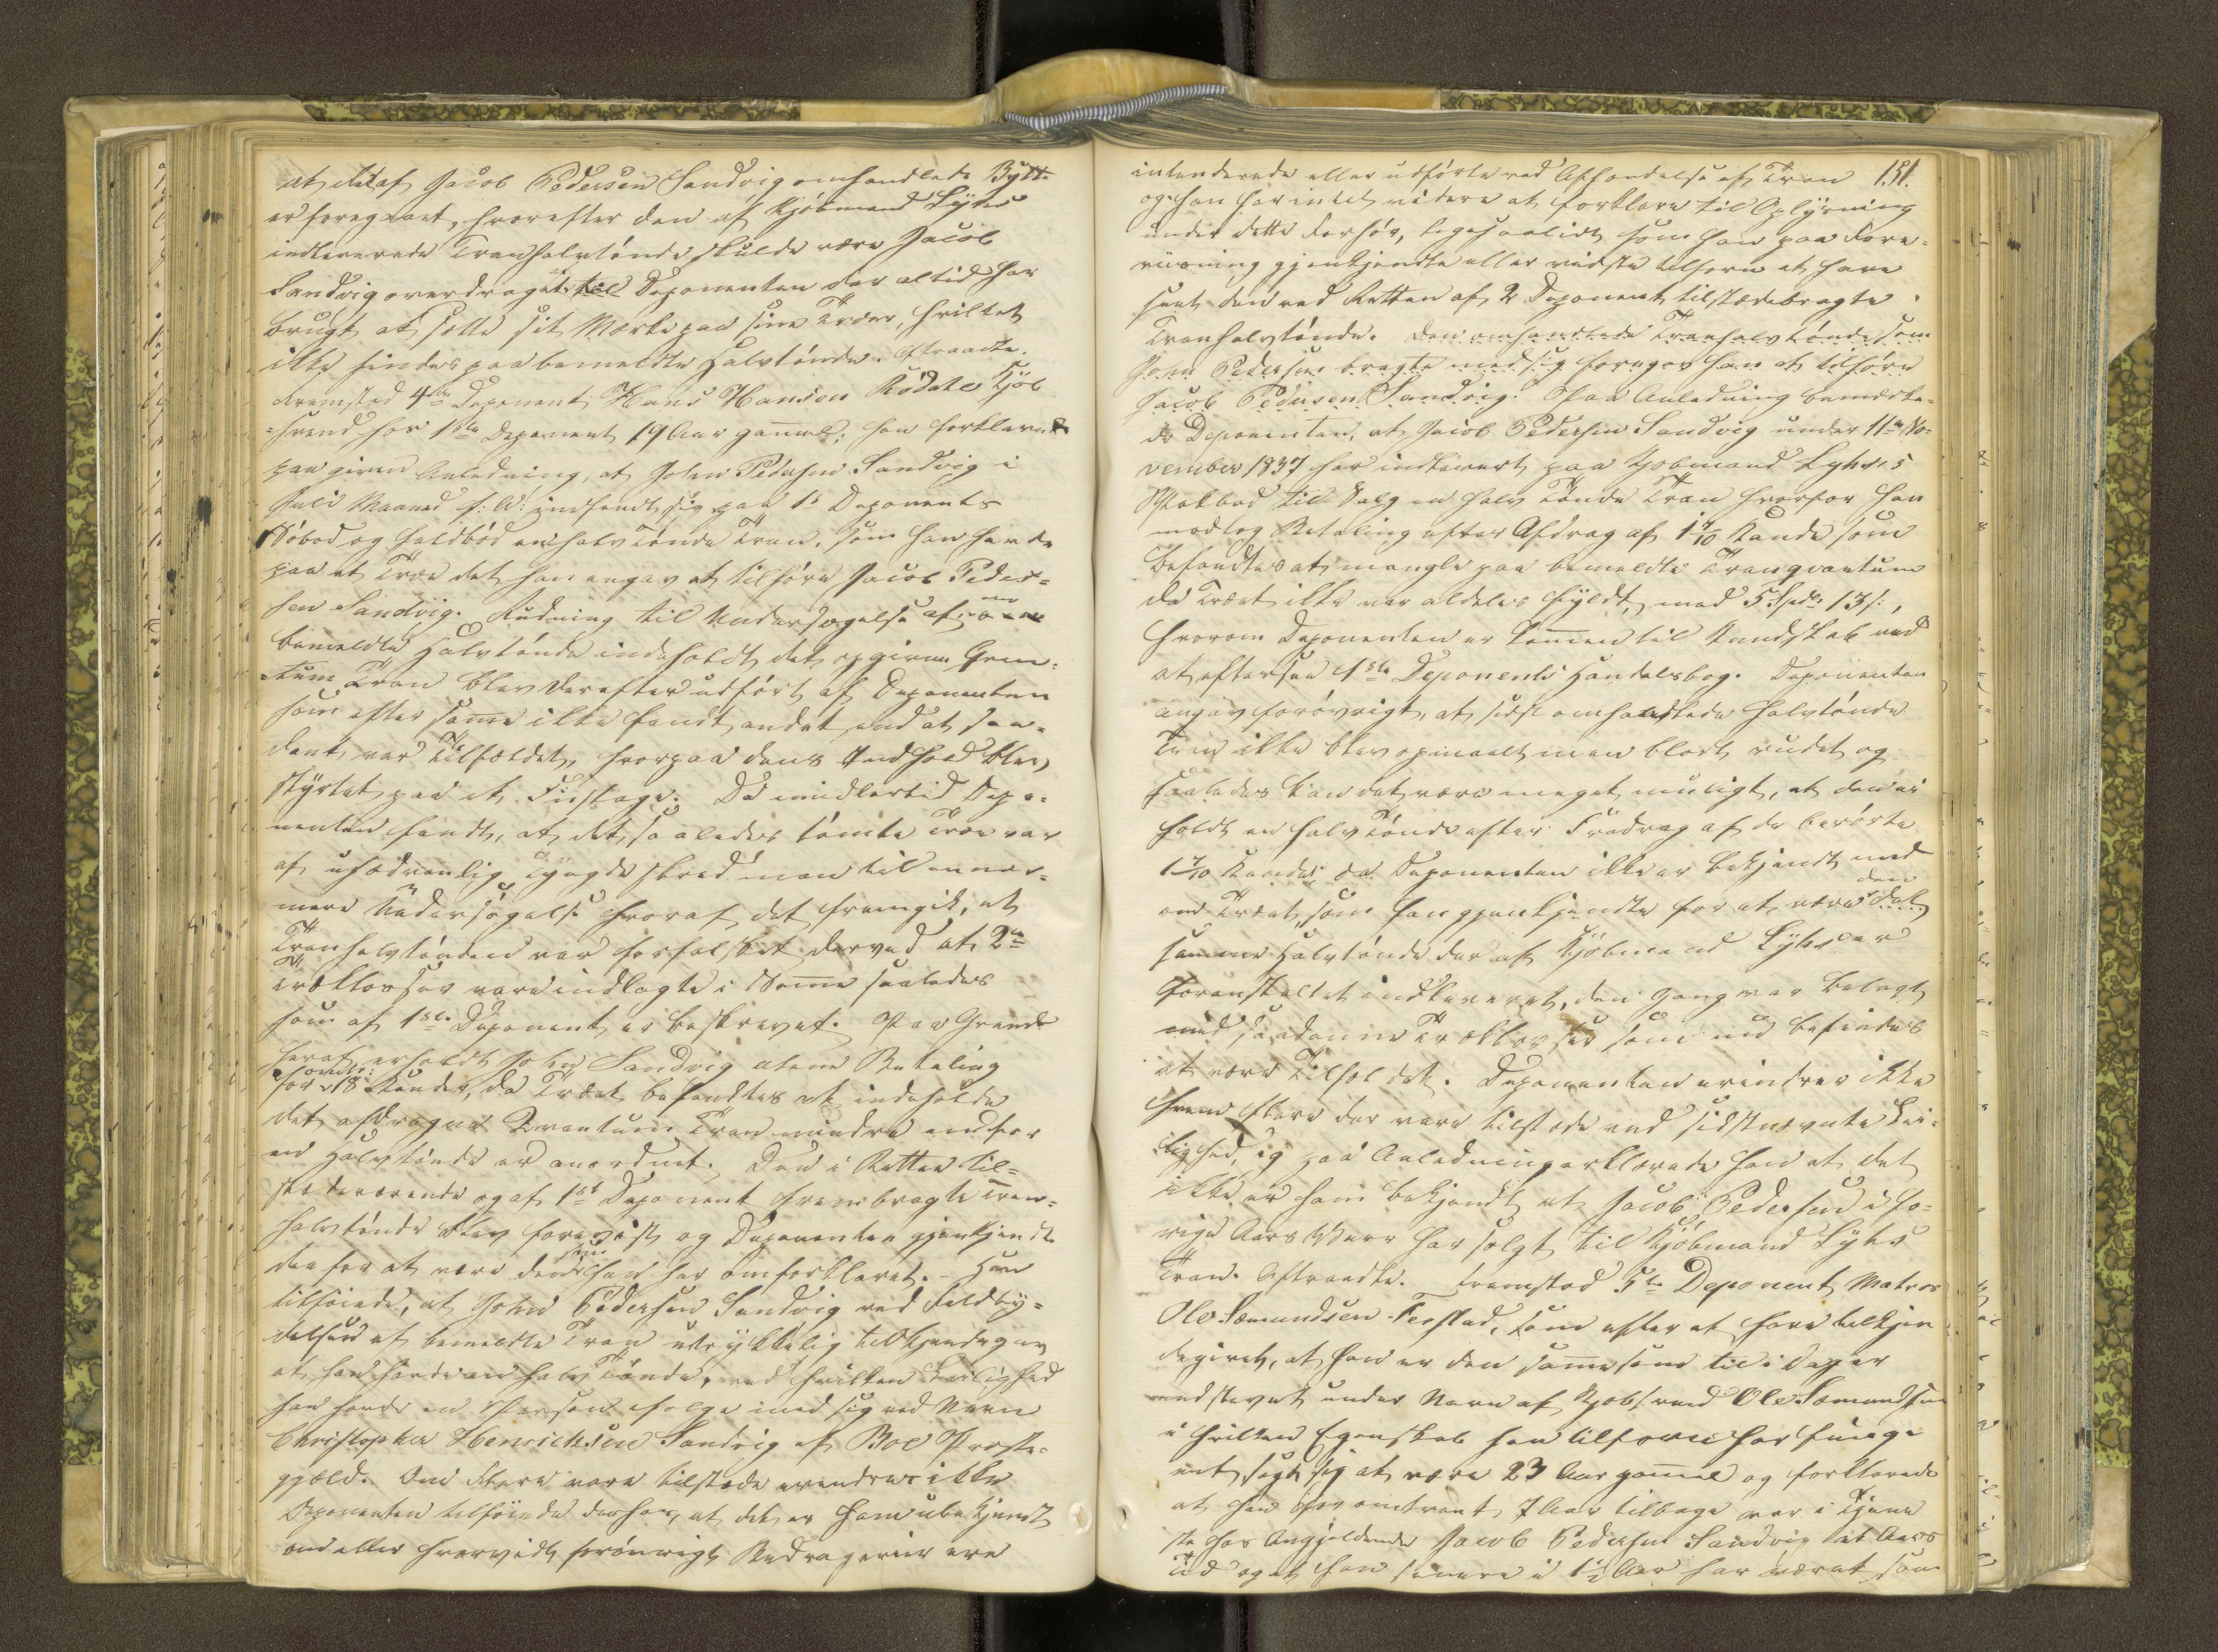 at det af Jacob Pedersen Sandvig omhandlede Bytte
er foregaaet, hvorefter den af Kjöbmand Lyhs
indleverede Tranhalvtönde skulde være Jacob
Sandvig overdraget af Deponenten der altid har
brugt at sætte sit Mærke paa sine Træer, hvilket
ikke findes paa bemeldte Halvtönde. Aftraadte.
Fremstod 4de Deponent Hans Hansen Rödahl Kjöb-
svend hos 1ste Deponent 19 Aar gammel; han forklarede
paa given Anledning, at John Pedersen Sandvig i
Juli Maaned f: A: indfandt sig paa 1s Deponents
Söbod og falböd en halv Tönde Tran, som han havde
paa et Træe det han angav at tilhöre Jacob Peder-
sen Sandvig. Rudning til Undersögelse af om
bemeldte Halvtönde indeholdt det opgivne Qvan-
tum Tran blev derefter udfört af Deponenten
som efter samme ikke fandt andet end at saa-
dant var Tilfældet, hvorpaa dens Indhold blev
styrtet paa et Fustage. Da imidlertid Depo-
nenten fandt, at det saaledes tömte Træe var
af usædvanlig Tyngde skred man til en nær-
mere Undersögelse hvoraf det fremgik, at
Tranhalvtönden var forfalsket derved at 2de
Trækloser vare indlagte i Samme saaledes
som af 1ste Deponent er beskrevet. Paa Grund
heraf erholdt John Sandvig alene Betaling
for 18 Kander, da Træet befandtes at indeholde
det afdragne Qvantum Tran mindre end for
en Halvtönde er anordnet. Den i Retten til-
stedeværende og af 1st Deponent frembragte Tran-
halvtönde blev foreviist og Deponenten gjenkjendte
den for at være den som han har omforklaret. – Han
tilföiede, at John Pedersen Sandvig ved Falby-
delsen af bemeldte Tran udtrykkelig tilkjendegav
at han havde en halv Tönde, ved hvilken Leilighed
han havde en Person i fölge med sig ved Navn
Christopher Henrichsen Sandvig af Boe Præste-
gjæld. Om flere vare tilstede erindres ikke
Deponenten tilföiede derhos, at det er ham ubekjendt
om eller hvorvidt forövrigt Bedragerier ere
151.
intenderede eller udförte ved Afhændelse af Tran
og han har intet videre at forklare til Oplysning
under dette Forhör, ligesaalidt som han paa Fore-
viisning gjenkjendte eller vidste tilforn at have
seet den ved Retten af 2 Deponent tilstedebragte
Tranhalvtönde. Den omhandlede Tranhalvtönde som
John Pedersen bragte med sig foregav han at tilhöre
Jacob Pedersen Sandvig. Paa Anledning bemærke-
de Deponenten, at Jacob Pedersen Sandvig under 11te No-
vember 1837 har indleveret paa Kjöbmand Lyhs's
Pakbod til Salg en halv Tönde Tran hvorfor han
modtog Betaling efter Afdrag af 1 7/10 Kande som
befandtes at mangle paa bemeldte Tranqvantum
da Træet ikke var aldeles fyldt, med 5 Spd 13 s,
hvorom Deponenten er kommen til Kundskab ved
at eftersee 1ste Deponents Handelsbog. Deponenten
angav forövrigt, at sidst omhandlede Halvtönde
Tran ikke blev opmaalt men blot rudet og
saaledes kan det være meget muligt, at den ei
holdt en halv Tönde efter Fradrag af de berörte
1 7/10 Kande, da Deponenten ikke er bekjendt med
om Træet, som han gjenkjendte for at være den
samme Halvtönde der af Kjöbmand Lyhs er
foranstaltet indleveret, den Gang var belagt
med saadanne Trækloser som nu befindes
at være Tilfældet. Deponenten erindrer ikke
hvem flere der vare tilstede ved sidstnævnte Lei-
lighed, og paa Anledning erklærede han at det
ikke er ham bekjendt at Jacob Pedersen i fo-
rige Aars Vaar har solgt til Kjöbmand Lyhs
Tran. Aftraadte. Fremstod 5te Deponent Matros
Ole Sæmundsen Terstad, som efter at have tilkjen
degivet, at han er den samme som til i Dag er
indstævnt under Navn af Kjöbsvend Ole Sæmundsen
i hvilken Egenskab han tilforn har funge
ret, sagde sig at være 23 Aar gammel og forklarede
at han for omtrent 7 Aar tilbage var i Tjene
ste hos Angjældende Jacob Pedersen Sandvig et Aars
Tid og at han senere i 1½ Aar har været som